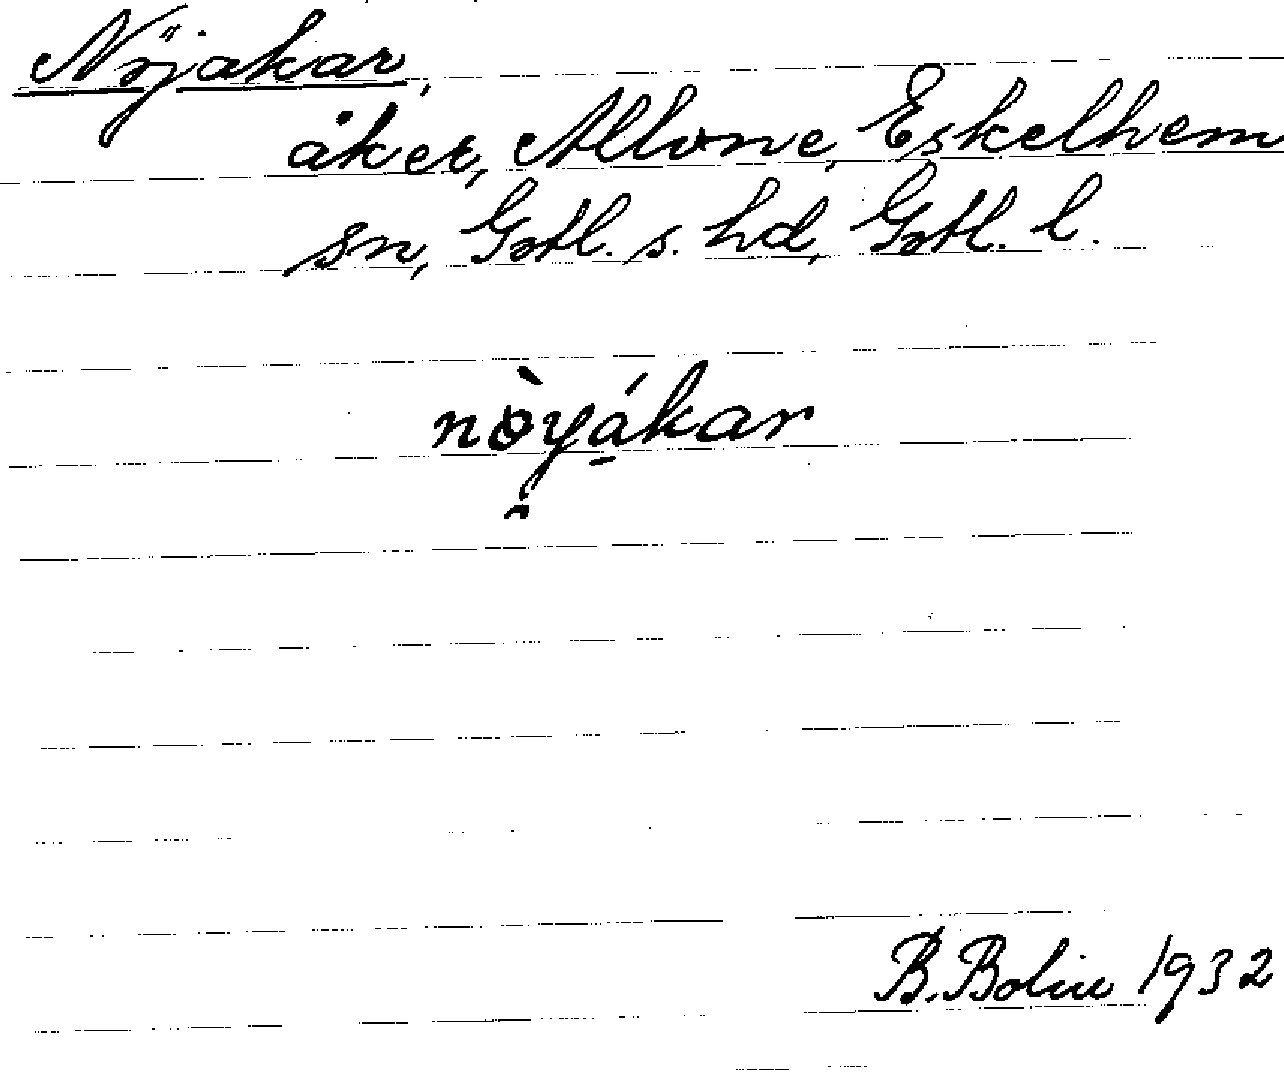 Nöjakar,
åker, Allvne, Eskelhem
sn, Gotl. s. hd, Gotl. l.
nòyákar
B. Bolin 1932